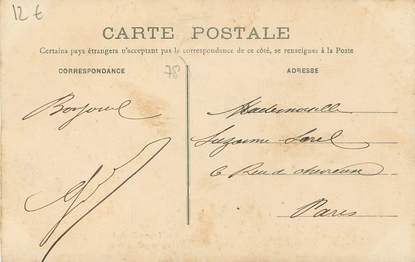 12 €
CARTE POSTALE
Certains pays étrangers n'acceptant pas la correspondance de ce côté, se renseigner à la Poste
CORRESPONDANCE
78
ADRESSE
Mademoiselle
Suzanne
6 Rue
Paris